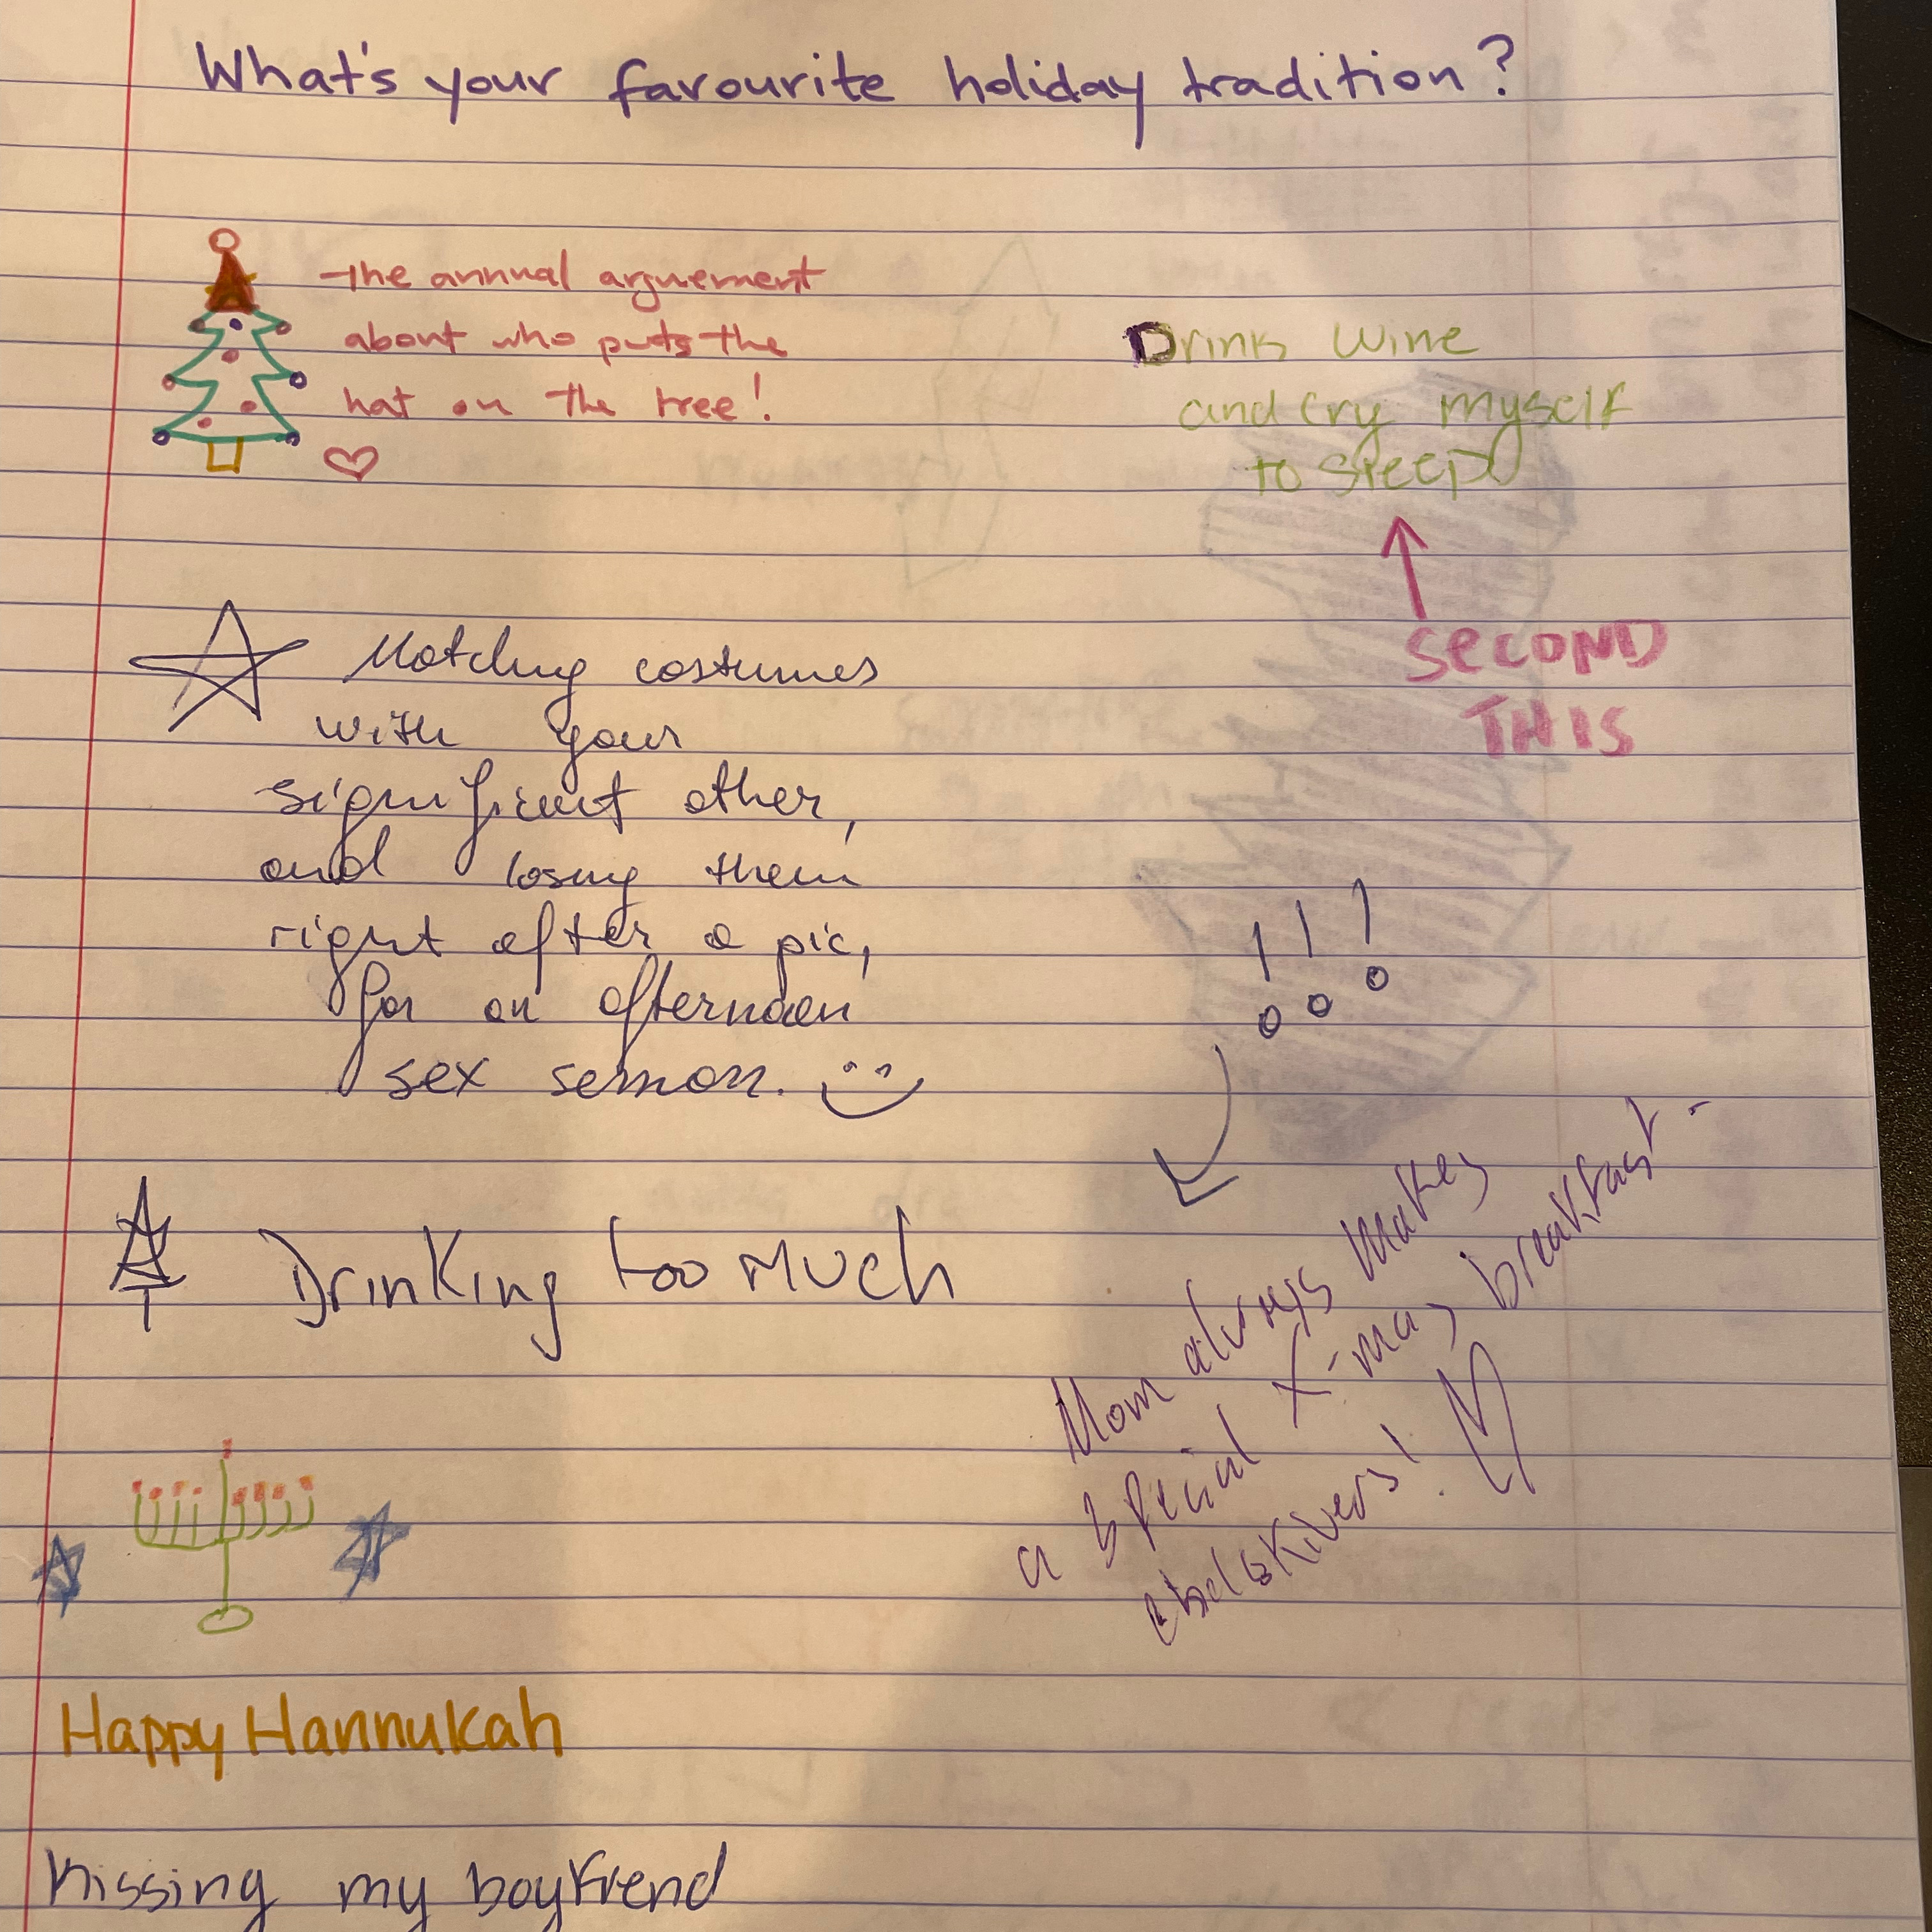 What's your favourite holiday tradition?
the annual arguement
about who puts the
hat on the tree!
Drink wine
and cry myself
to sleep
SECOND
THIS
Matching costumes
with your
significant other,
and losing them
right after a pic,
for an afternoon
sex
!!!
Drinking too much
Mom always makes
a special x-mas breakfast -
Happy Hannukah
Kissing my boyfriend